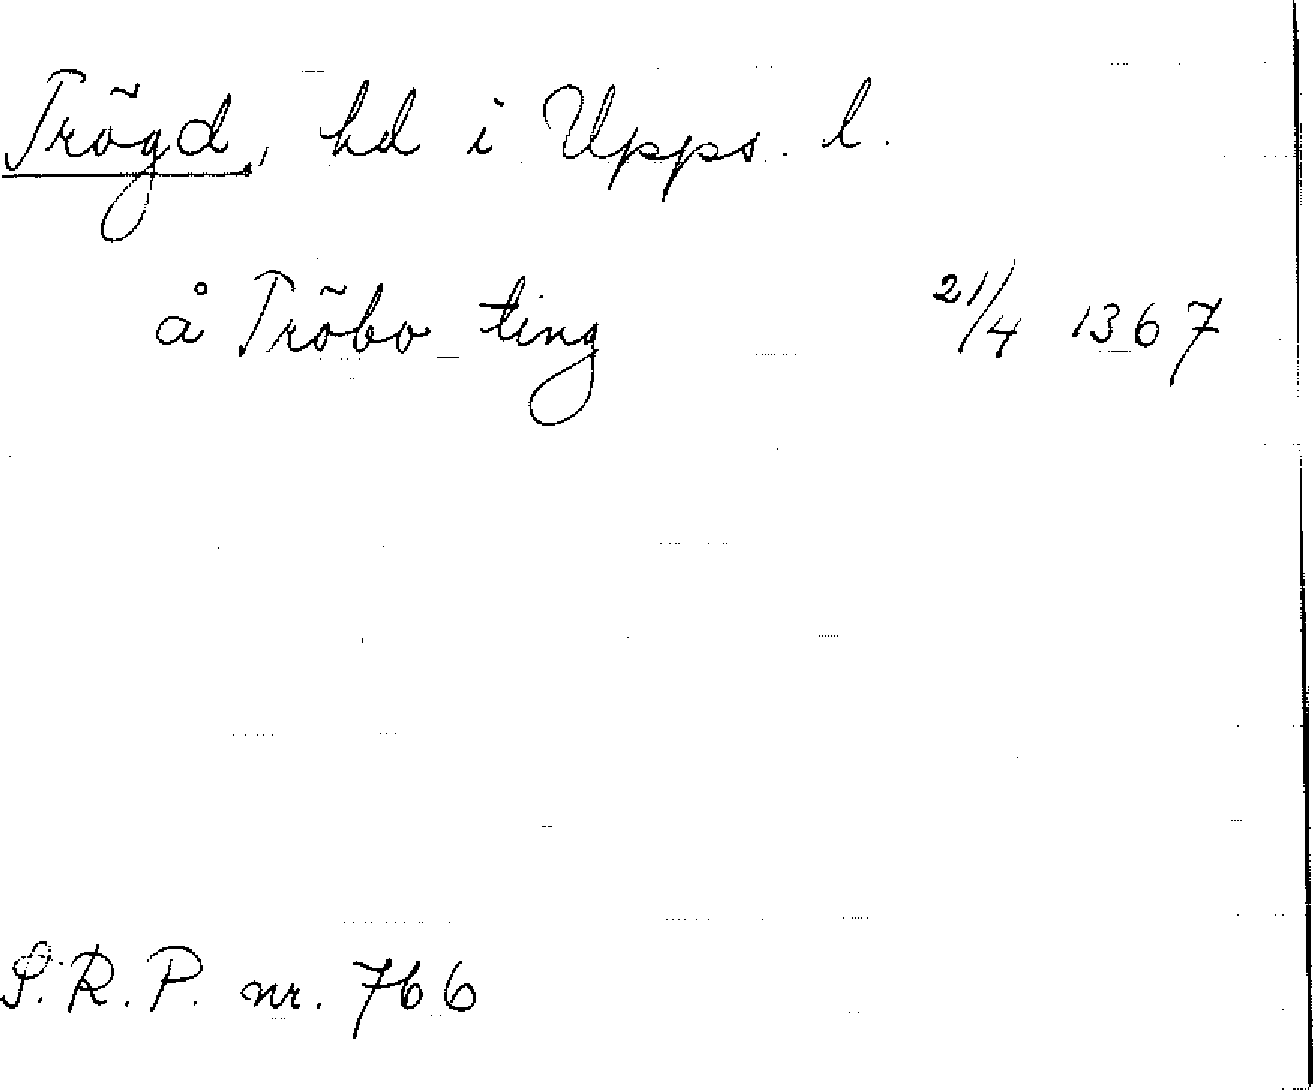 Trögd, hd i Upps. l.
å Tröbo ting 21/4 1367
S.R.P. nr. 766